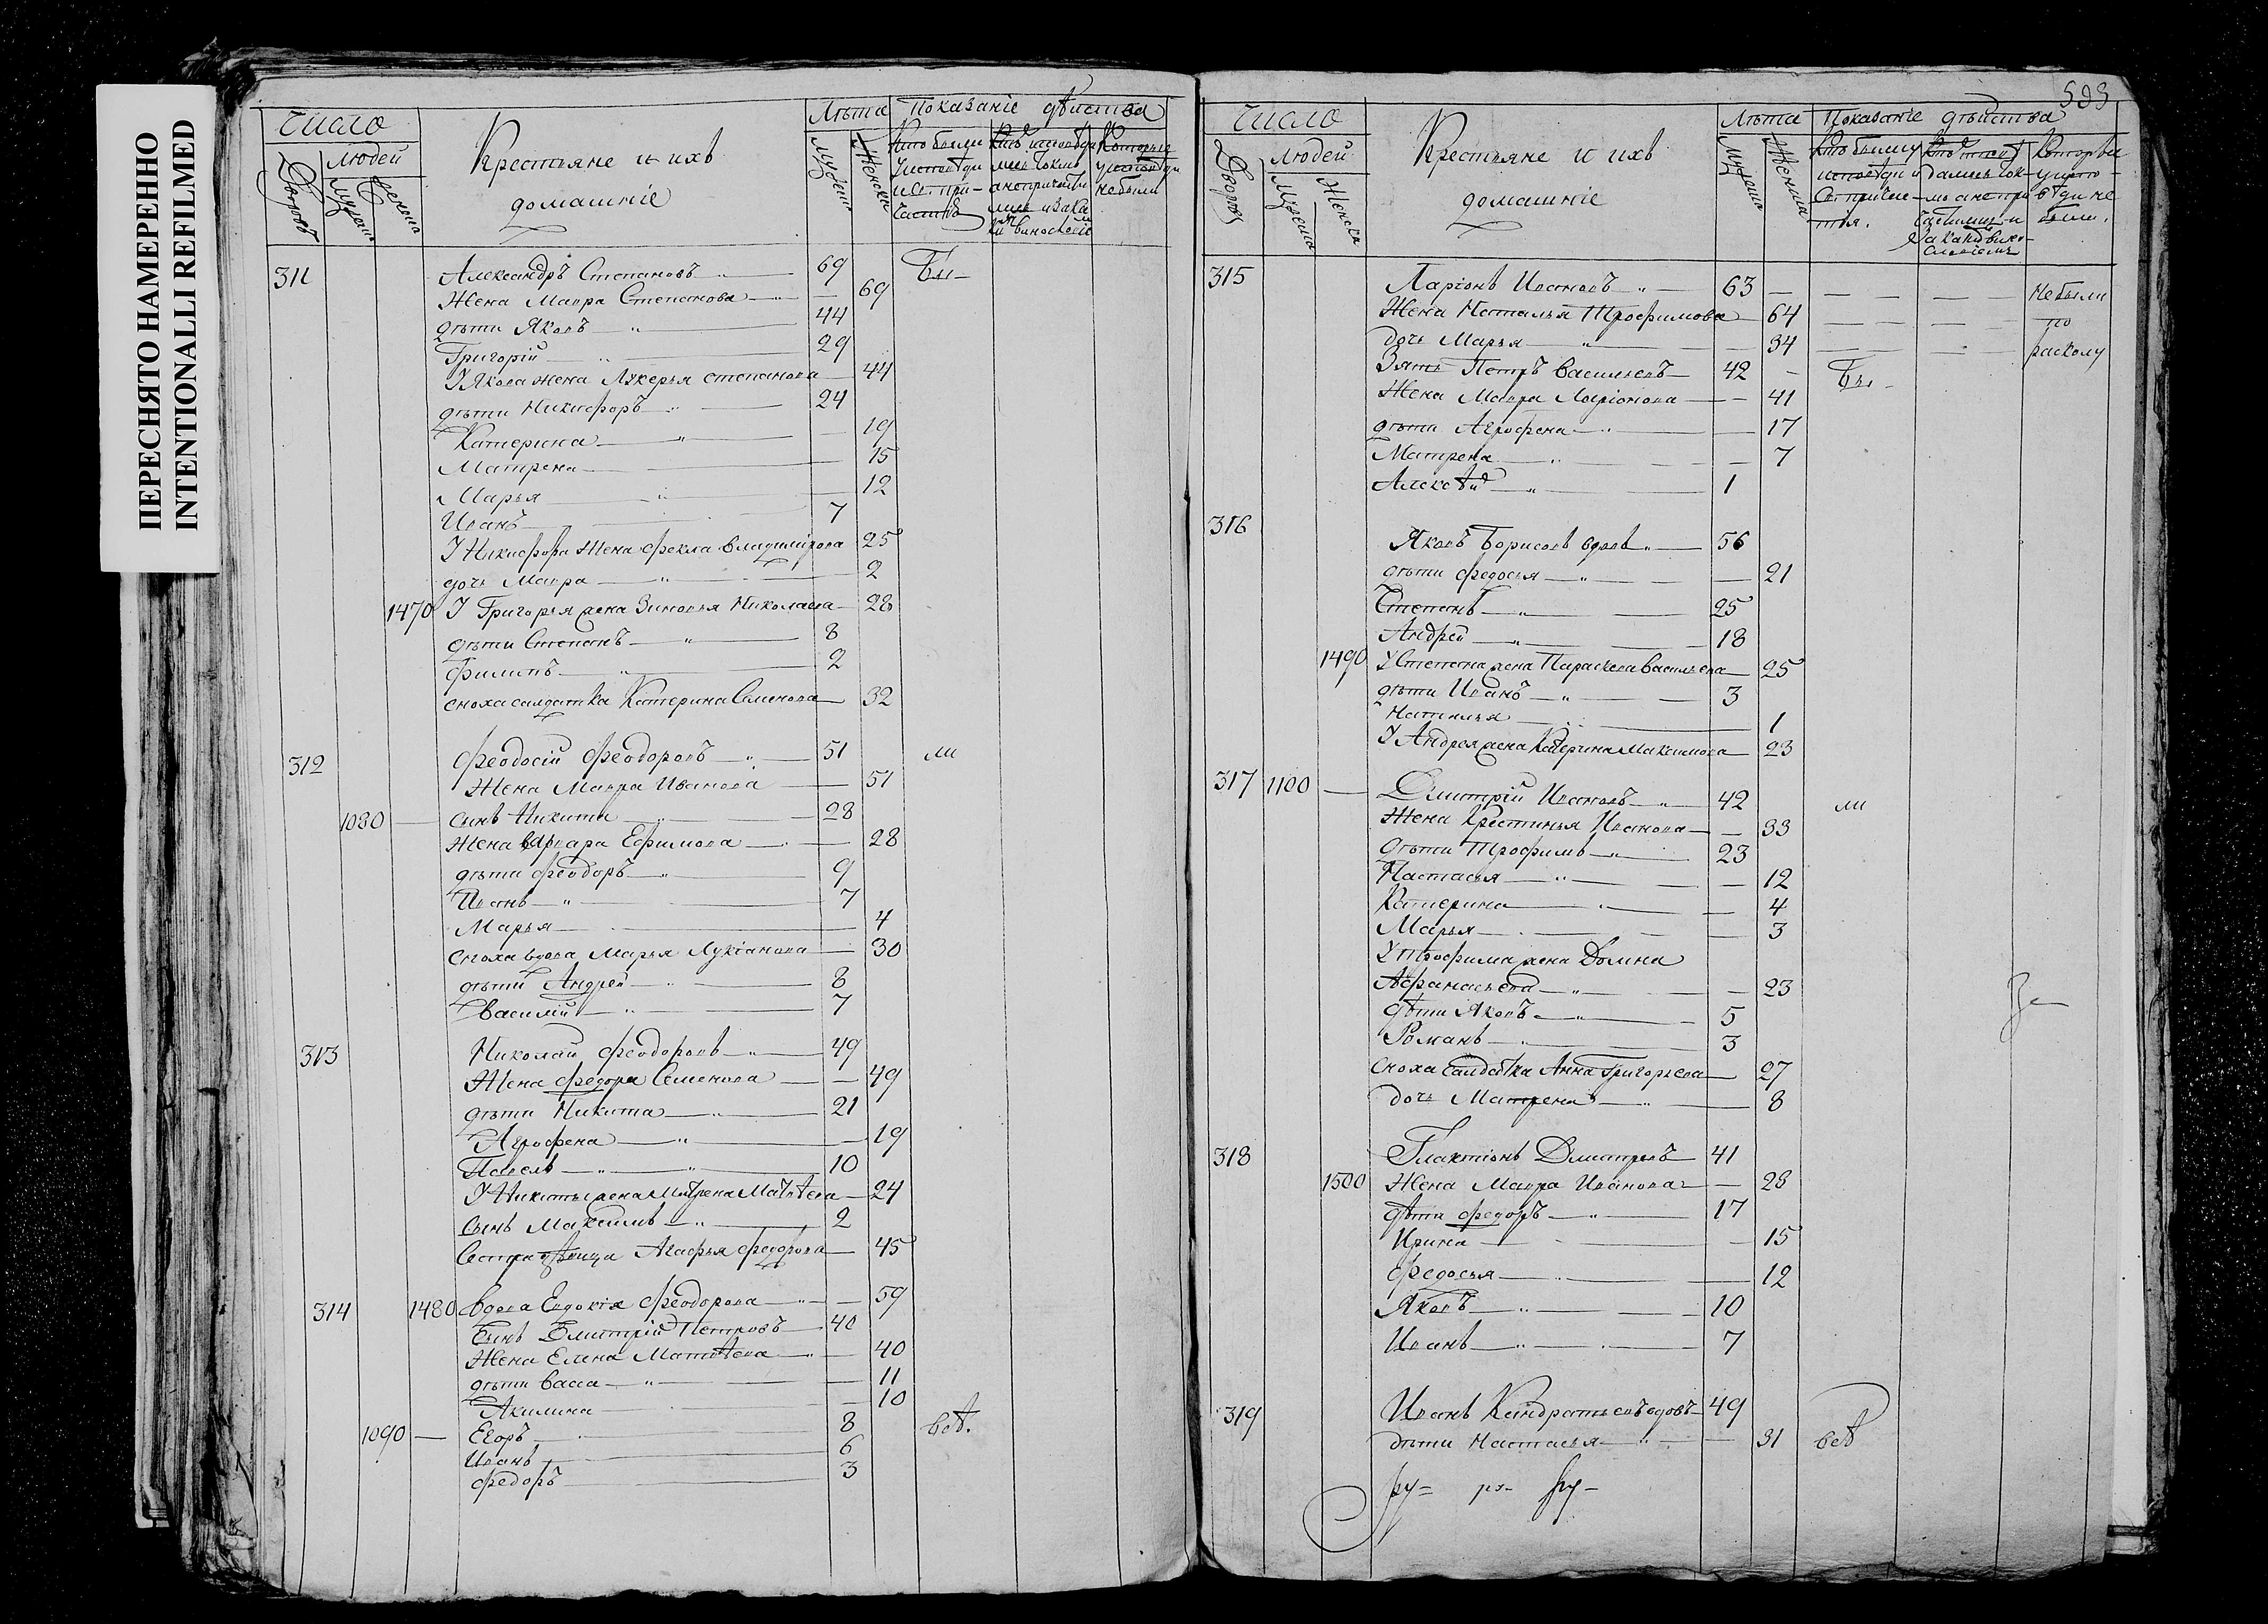 ПЕРЕСНЯТО НАМЕРЕННО
INTENTIONALLI REFILMED
Число
Дворовъ
людей
Мужеска
Женска
Крестьяне и ихъ
домашніе
Лѣта
Мужеска
Женска
Показаніе дѣйства
311 Александръ Степановъ 69 Бы-
Жена Мавра Степанова 69
дѣти Яковъ 44
Григорій 29
У Якова жена Лукерья степанова 44
дѣти Никифоръ 24
Катерина 19
Матрена 15
Марья 12
Иванъ 7
У Никифора Жена фекла владимірова 25
дочь Мавра 2
1470 У Григорья жена Зиновья Николаева 28
дѣти Степанъ 8
Филипъ 2
сноха салдатка Катерина Семенова 32
312 феодосій феодоровъ 51 ли
Жена Мавра Иванова 51
1080 сынъ Никита 28
Жена варвара Ефимова 28
дѣти феодоръ 9
Иванъ 7
Марья 4
сноха вдова Марья Лукіанова 30
дѣти Андрей 8
василій 7
313 Николай феодоровъ 49
Жена федора Семенова 49
дѣти Никита 21
Агрофена 19
Павелъ 10
У Никиты жена Матрена Матвѣева 24
сынъ Максимъ 2
Сестра дѣвица Агафья феодорова 45
314 1480 вдова Евдокія феодорова 59
Сынъ Дмитрій Петровъ 40
Жена Елена Матвѣева 40
дѣти васа 11
Акилина 10
1090 Егоръ 8 всѣ.
Иванъ 6
федоръ 3
593
Число
Дворовъ
людей
Мужеска
Женска
Крестьяне и ихъ
домашніе
Лѣта
Мужеска
Женска
Показаніе дѣйства
315 Ларіонъ Ивановъ 63 Небыли
Жена Наталья Трофимова 64 по
дочь Марья 34 расколу
Зять Петръ васильевъ 42 Бы-
Жена Мавра Ларіонова 41
дѣти Агрофена 17
Матрена 7
Алексѣй 1
316 Яковъ Борисовъ вдовъ 56
дѣти федосья 21
Степанъ 25
Андрей 18
1490 У Степана жена Параскева васильева 25
дѣти Иванъ 3
Наталья 1
У Андрея жена Катерина Максимова 23
317 1100 Дмитрій Ивановъ 42 ли
Жена Крестинья Иванова 33
дѣти Трофимъ 23
Настасья 12
Катерина 4
Марья 3
У Трофима жена Домна
Афанасьева 23
дѣти Яковъ 5
Романъ 3
Сноха Салдатка Анна Григорьева 27
дочь Матрена 8
318 Галактіонъ Дмитревъ 41
1500 Жена Мавра Иванова 28
дѣти федоръ 17
Ирина 15
федосья 12
Яковъ 10
Иванъ 7
319 Иванъ Кандратьевъ вдовъ 49
дѣти Настасья 31 всѣ